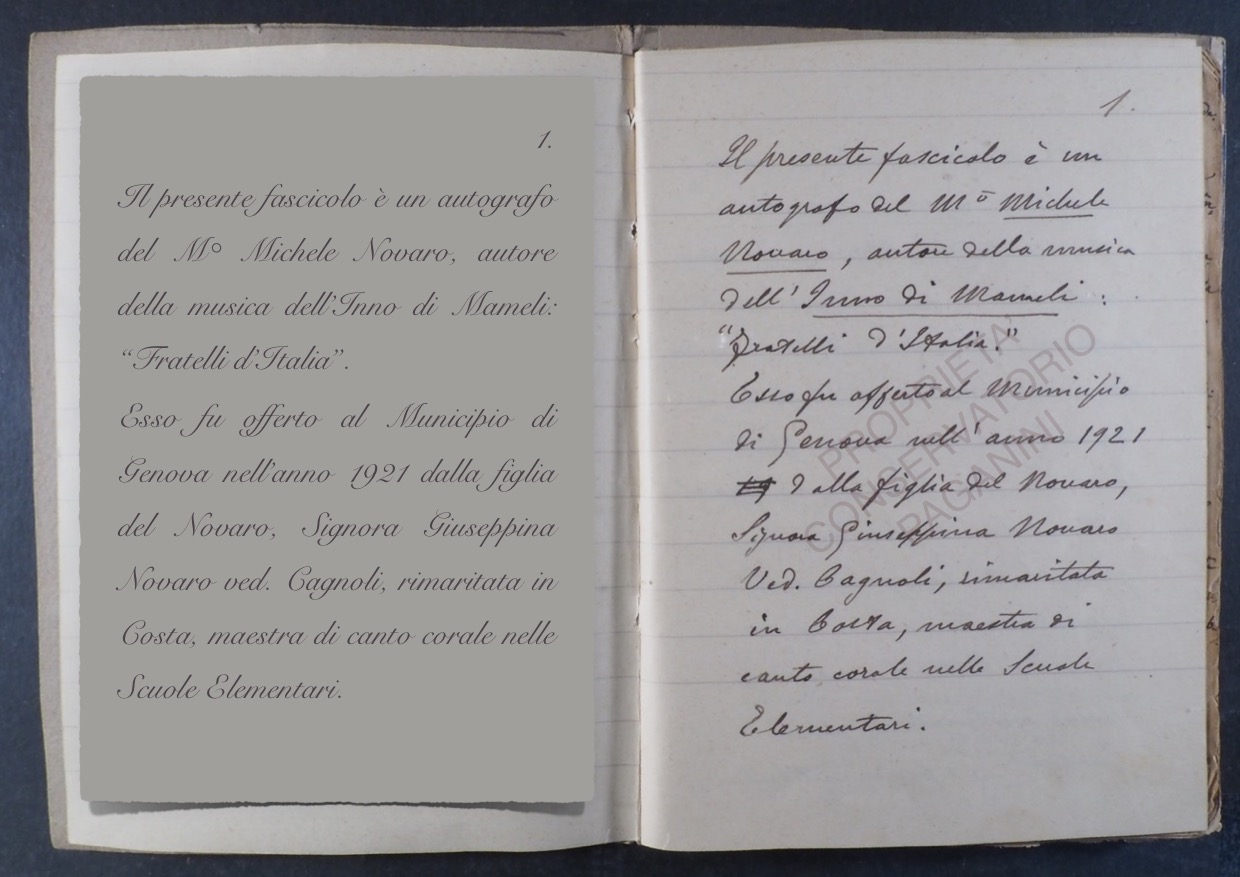 1.
Il presente fascicolo è un autografo
del M° Michele Novaro, autore
della musica dell'Inno di Mameli:
“Fratelli d'Italia”.
Esso fu offerto al Municipio di
Genova nell'anno 1921 dalla figlia
del Novaro, Signora Giuseppina
Novaro ved. Cagnoli, rimaritata in
Costa, maestra di canto corale nelle
Scuole Elementari.
1.
Il presente fascicolo è un
autografo del M° Michele
Novaro, autore della musica
dell'Inno di Mameli:
“Fratelli d'Italia.”
Esso fu offerto al Municipio
di Genova nell'anno 1921
dalla figlia del Novaro,
Signora Giuseppina Novaro
Ved. Cagnoli, rimaritata
in Costa, maestra di
canto corale nelle Scuole
Elementari.
PROPRIETA'
CONSERVATORIO
PAGANINI